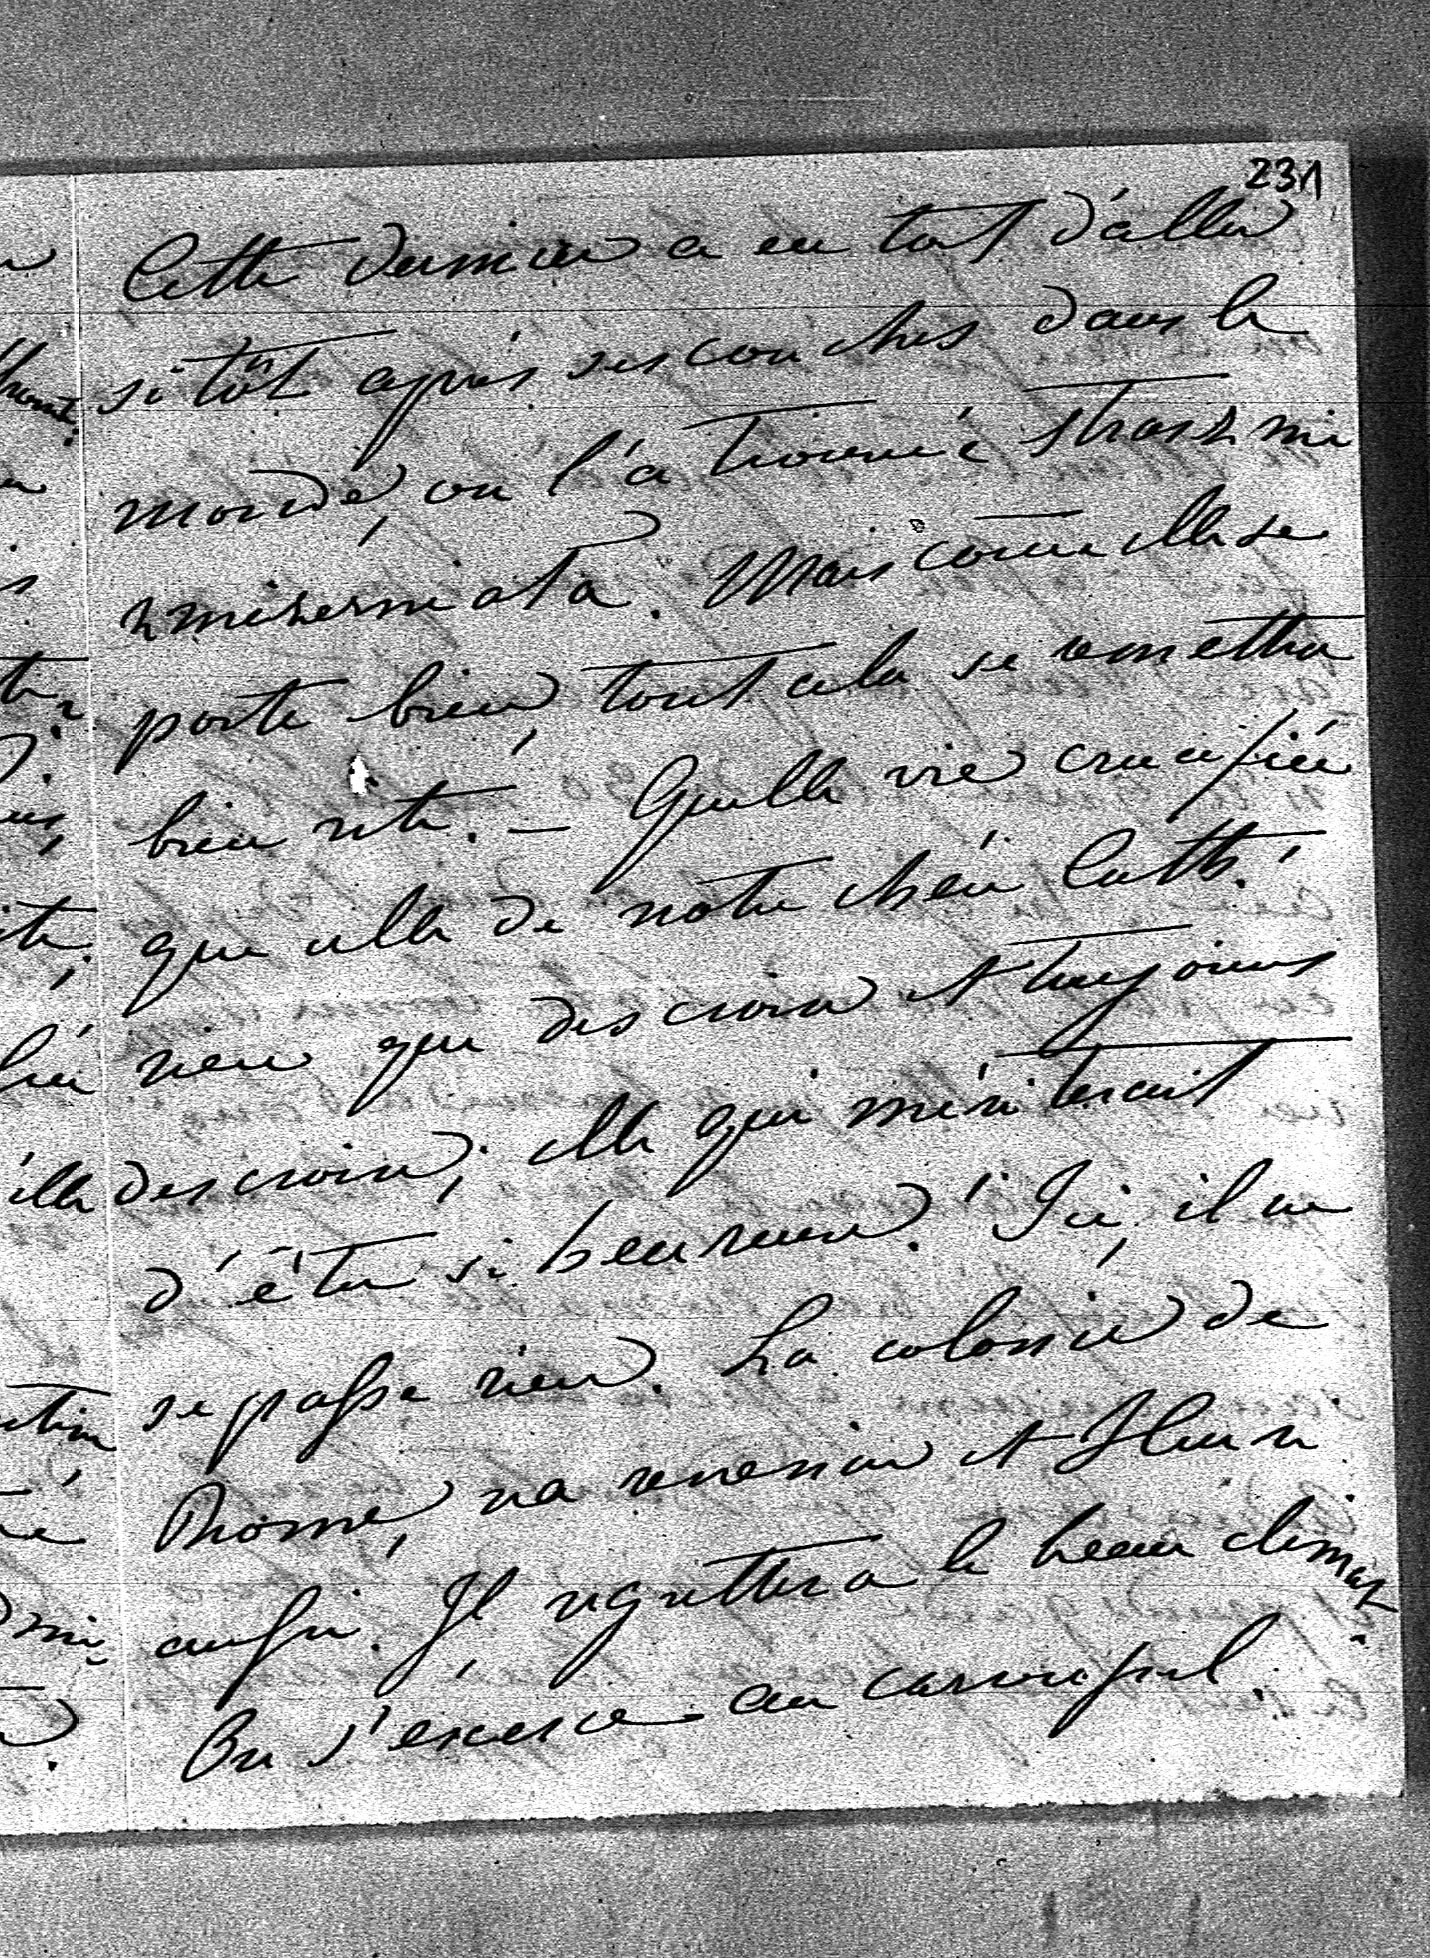 231
Cette dernière a eu tort d'aller
si tôt après ses couches dans le
monde, on l'a trouvée strasznie
zmizerniała. Mais comme elle se
porte bien, tout cela se remettra
bien vite. – Quelle vie crucifiée
que celle de notre chère Cath.!
rien que des croix et toujours
des croix; elle qui mériterait
d'être si heureuse! Ici, il ne
se passe rien. La colonie de
Rome, va revenir et Henri
aussi. Il regrettera le beau climat.
On s'exerce au carroussel.